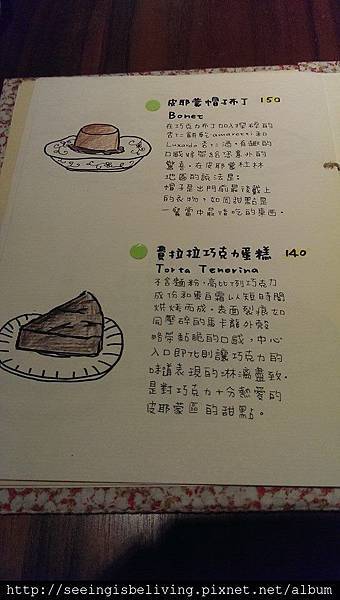 皮耶蒙帽子布丁 150
Bonet
在巧克力布丁加入捏碎的
杏仁餅乾amaretti和
Luxardo杏仁酒,有趣的
口感總帶給您意外的
驚喜。在皮耶蒙杜林
地區的說法是:
帽子是出門前最後戴上
的衣物,如同甜點是
一餐當中最後吃的東西。
費拉拉巧克力蛋糕 140
Torta Tenerina
不含麵粉,高比例巧克力
成份和蛋白霜以短時間
烘烤而成。表面裂痕如
同壓碎的馬卡龍外殼
略帶黏脆的口感,中心
入口即化則讓巧克力的
味道表現的淋漓盡致.
是對巧克力十分熱愛的
皮耶蒙區的甜點。
http://seeingisbeliving.pixnet.net/album